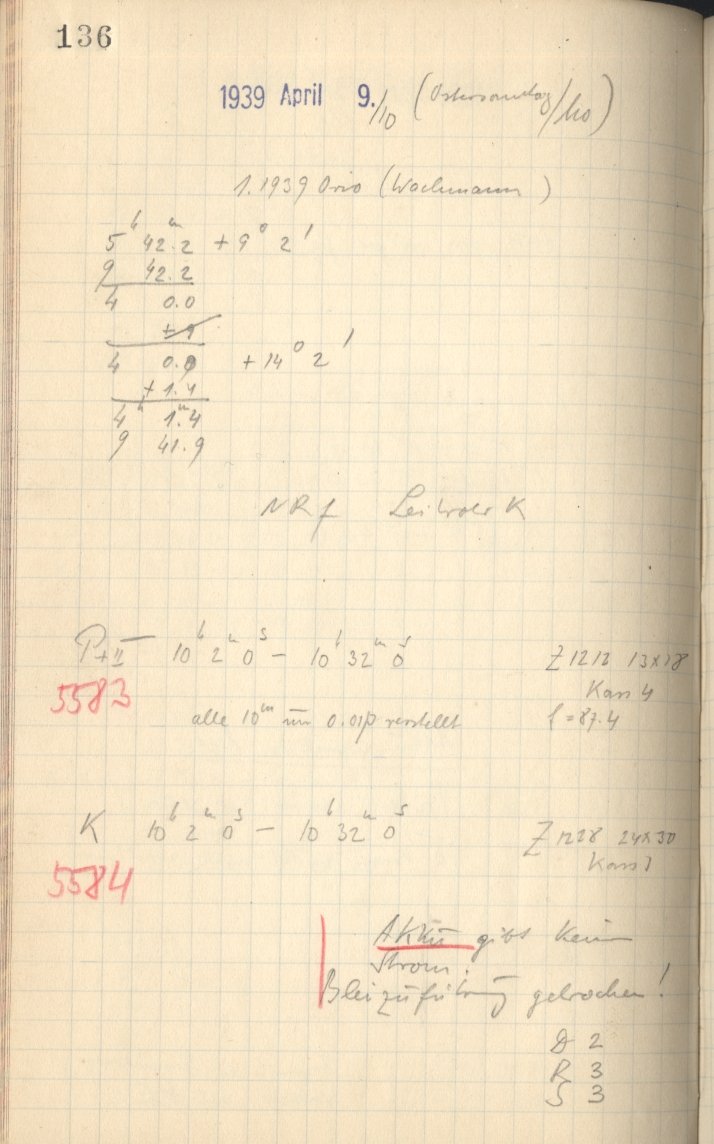 136
1939 April 9./10 (Ostersonntag/Mo)
1.1939 Orio (Wachmann)
5h 42.m2 + 9° 2'
9 42.2
4 0.0
4 0.0 + 14° 2'
+ 1.4
4h 1.m4
9 41.9
NRf Leitrohr K
P+II 10h 2m 0s – 10h 32m 0s Z 1212 13x18
5583 Kass 4
alle 10m um 0.01p verstellt f=87.4
K 10h 2m 0s – 10h 32m 0s Z 1228 24x30
5584 Kass
Akku gibt kein
Strom.
Bleizuführung gebrochen!
D 2
R 3
S 3